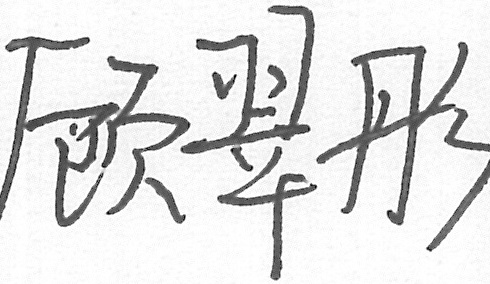 顾翠彤